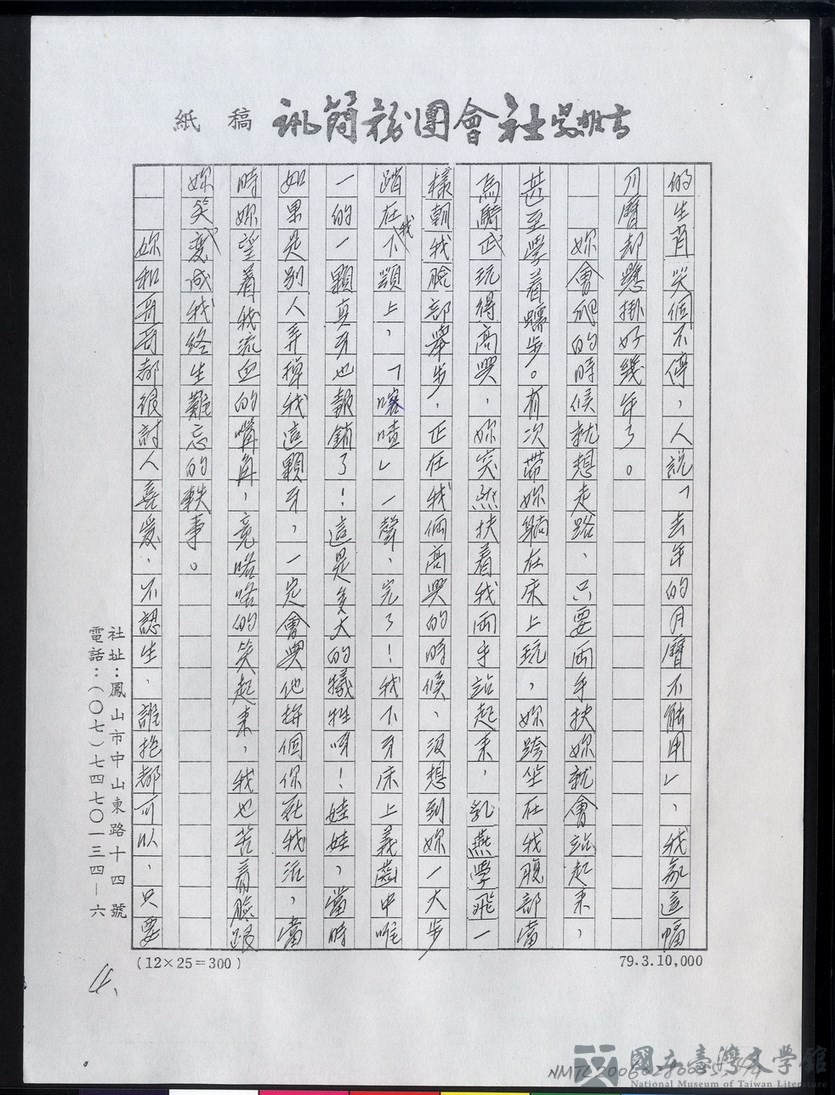 吳明吉社會團務簡訊 稿紙
的生肖笑個不停,人說「去年的月曆不能用」,我家這幅
月曆却懸掛好幾年了。
妳會爬的時候就想走路,只要兩手扶妳就會站起來,
甚至學着蹲步。有次帶妳躺在床上玩,妳跨坐在我腹部當
馬騎或玩得高興,妳突然扶着我兩手站起來,乳燕學飛一
樣朝我臉部舉步,正在我倆高興的時候,沒想到妳一大步
踏在我下顎上,「喀喳」一聲,完了!我下牙床上義齒中唯
一的一顆真牙也報銷了!這是多大的犧牲呀!娃娃,當時
如果是別人弄掉我這顆牙,一定會與他拼個你死我活,當
時妳望着我流血的嘴角,竟咯咯的笑起來,我也苦着臉跟
妳笑,變成我終生難忘的軼事。
妳和哥哥都很討人喜愛,不認生,誰抱都可以,只要
社址:鳳山市中山東路十四號
電話:(〇七)七四七〇一三四—六
(12×25=300)
79.3.10,000
4、
國立臺灣文學館
National Museum of Taiwan Literature